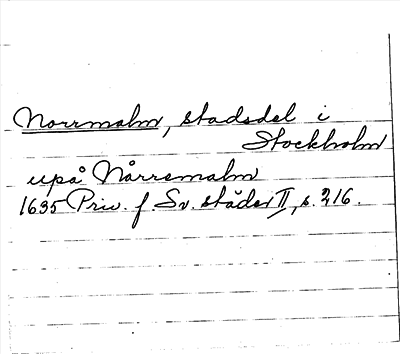 Norrmalm, stadsdel i
Stockholm
upå Nårremalm
1635 Priv. f. Sv. städer II, s. 216.